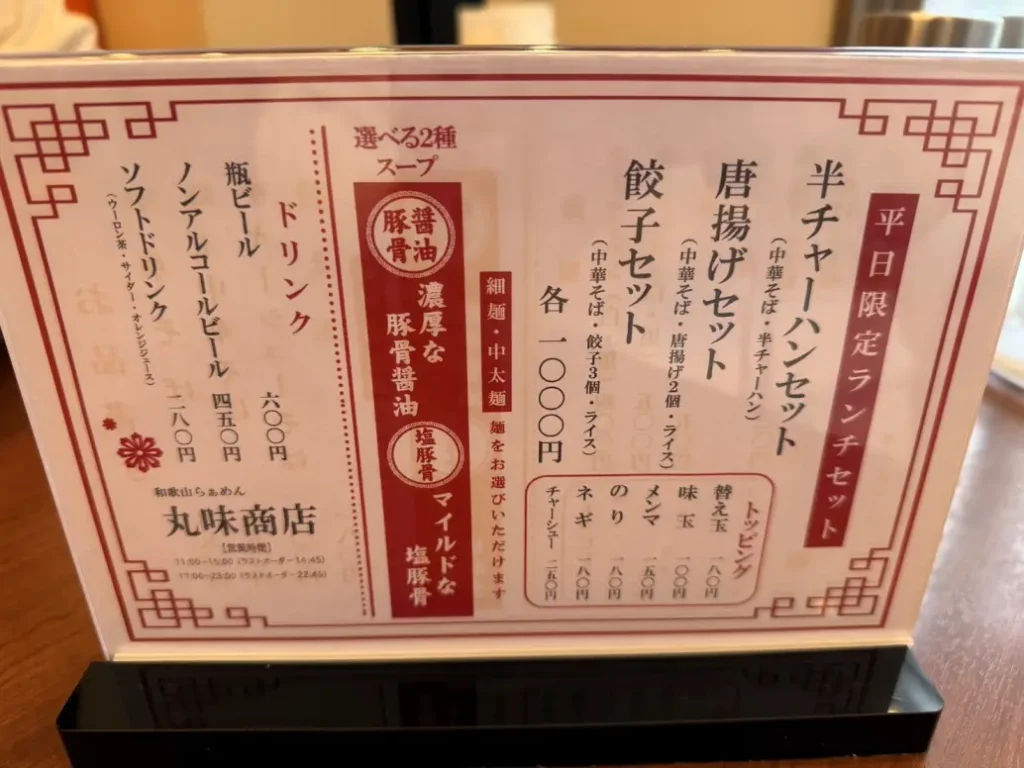 平日限定ランチセット
半チャーハンセット
(中華そば・半チャーハン)
唐揚げセット
(中華そば・唐揚げ2個・ライス)
餃子セット
(中華そば・餃子3個・ライス)
各 一〇〇〇円
トッピング
替え玉 一八〇円
味玉 一〇〇円
メンマ 一五〇円
のり 一八〇円
ネギ 一八〇円
チャーシュー 二五〇円
細麺・中太麺 麺をお選びいただけます
選べる2種
スープ
醤油
豚骨
濃厚な
豚骨醤油
塩豚骨
マイルドな
塩豚骨
ドリンク
瓶ビール 六〇〇円
ノンアルコールビール 四五〇円
ソフトドリンク 二八〇円
(ウーロン茶・サイダー・オレンジジュース)
和歌山らぁめん
丸味商店
[営業時間]
11:00~15:00 (ラストオーダー14:45)
17:00~23:00 (ラストオーダー22:45)